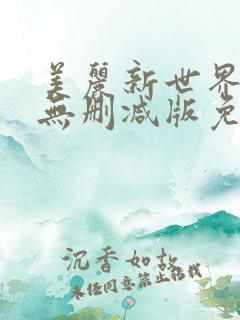 美麗新世界
無刪减版免
沉香如故
未经同意禁止搭载